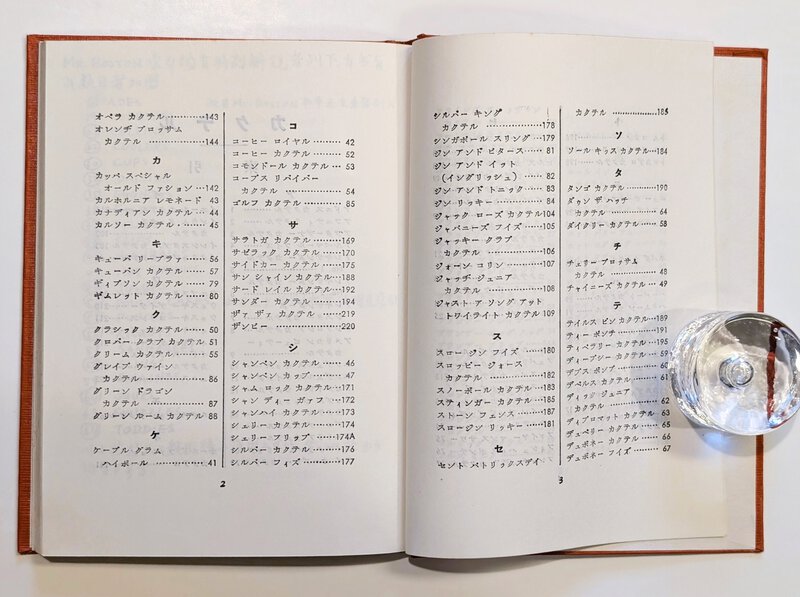 オペラ カクテル ……143
オレンヂ ブロッサム
カクテル ………………144
カ
カッペ スペシャル
オールド ファション ……142
カルホルニア レモネード 43
カナディアン カクテル …… 44
カルソー カクテル ………… 45
キ
キューバ リーブラァ ……… 56
キューバン カクテル ……… 57
ギィブソン カクテル ……… 79
ギムレット カクテル ……… 80
ク
クラシック カクテル ……… 50
クロバー クラブ カクテル 51
クリーム カクテル ………… 55
グレイプ ウァイン
カクテル ……………… 86
グリーン ドラゴン
カクテル ……………… 87
グリーン ルーム カクテル 88
ケ
ケーブル グラム
ハイボール ……………… 41
コ
コーヒー ロイヤル ………… 42
コーヒー カクテル ………… 52
コモンドール カクテル …… 53
コープス リバイバー
カクテル ……………… 54
ゴルフ カクテル …………… 85
サ
サラトガ カクテル …………169
サゼラック カクテル ………170
サイドカー カクテル ………175
サン シャイン カクテル ……188
サード レイル カクテル ……192
サンダー カクテル …………194
ザァ ザァ カクテル …………219
ザンビー ……………………220
シ
シャンペン カクテル ……… 46
シャンペン カップ ………… 47
シャム ロック カクテル ……171
シャン ディー ガァフ ………172
シャンハイ カクテル ………173
シェリー カクテル …………174
シェリー フリップ …………174A
シルバー カクテル …………176
シルバー フィズ ……………177
2
シルバー キング
カクテル ………………178
シンガポール スリング ……179
ジン アンド ビタース ……… 81
ジン アンド イット
(イングリッシュ) ……… 82
ジン アンド トニック ……… 83
ジン リッキー ……………… 84
ジャック ローズ カクテル104
ジャバニーズ フイズ ………105
ジャッキー クラブ
カクテル ………………106
ジョーン コリン ……………107
ジャッヂ ジュニア
カクテル ………………108
ジャスト ア ソング アット
トワイライト カクテル 109
ス
スロー ジン フイズ …………180
スロッピー ジョース
カクテル ………………182
スノーボール カクテル ……183
スティンガー カクテル ……186
ストーン フェンス …………187
スロージン リッキー ………181
セ
セント パトリックスデイ
カクテル ………………185
ソ
ソール キッス カクテル ……184
タ
タンゴ カクテル ……………190
ダゥン ザ ハッチ
カクテル ……………… 64
ダイクリー カクテル ……… 58
チ
チェリー ブロッサム
カクテル ……………… 48
チャイニーズ カクテル …… 49
テ
テイルス ピン カクテル ……189
ティー ポンチ ………………191
ティペラリー カクテル ……195
ディープシー カクテル …… 59
デプス ボンブ ……………… 60
デベルス カクテル ………… 61
ディッグ ジュニア
カクテル ……………… 62
ディプロマット カクテル … 63
デュベリー カクテル ……… 65
デュボネー カクテル ……… 66
デュボネー フイズ ………… 67
3